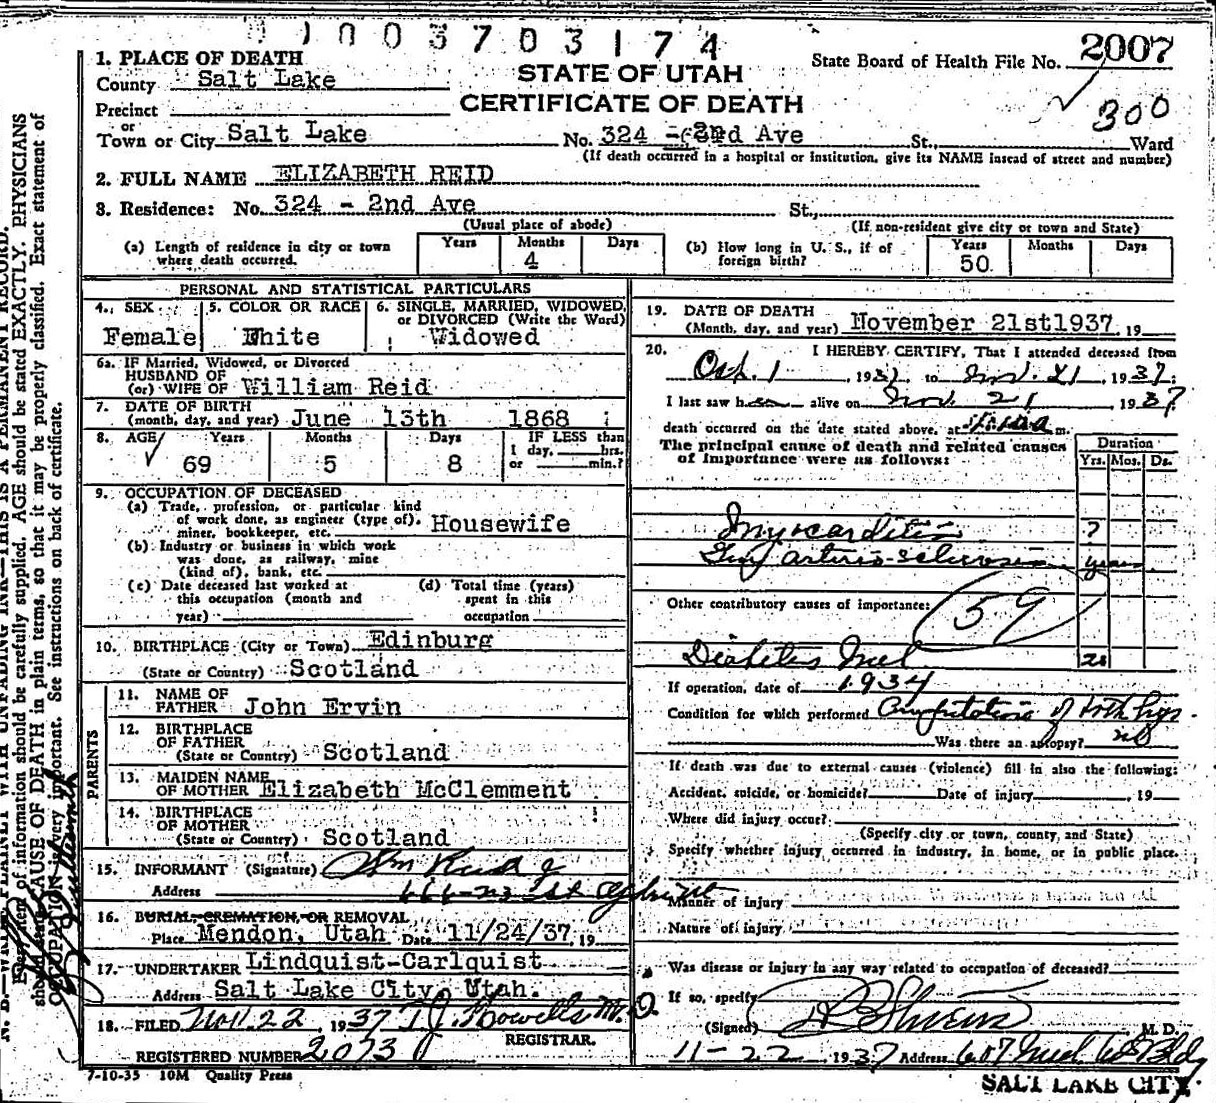 1003703174
1. PLACE OF DEATH
County Salt Lake
Precinct
or
Town or City Salt Lake
STATE OF UTAH
CERTIFICATE OF DEATH
State Board of Health File No. 2007
300
No. 324 - 2nd Ave St., Ward
(If death occurred in a hospital or institution, give its NAME insead of street and number)
2. FULL NAME ELIZABETH REID
3. Residence: No. 324 - 2nd Ave St.,
(Usual place of abode) (If non-resident give city or town and State)
(a) Length of residence in city or town
where death occurred.
Years Months Days
4
(b) How long in U. S., if of
foreign birth?
Years Months Days
50
PERSONAL AND STATISTICAL PARTICULARS
4. SEX 5. COLOR OR RACE 6. SINGLE, MARRIED, WIDOWED,
or DIVORCED (Write the Word)
Female White Widowed
6a. IF Married, Widowed, or Divorced
HUSBAND OF
(or) WIFE OF William Reid
7. DATE OF BIRTH
(month, day, and year) June 13th 1868
8. AGE Years Months Days IF LESS than
1 day, hrs.
or min.?
69 5 8
9. OCCUPATION OF DECEASED
(a) Trade, profession, or particular kind
of work done, as engineer (type of),
miner, bookkeeper, etc. Housewife
(b) Industry or business in which work
was done, as railway, mine
(kind of), bank, etc.
(c) Date deceased last worked at
this occupation (month and
year)
(d) Total time (years)
spent in this
occupation
10. BIRTHPLACE (City or Town) Edinburg
(State or Country) Scotland
PARENTS
11. NAME OF
FATHER John Ervin
12. BIRTHPLACE
OF FATHER
(State or Country) Scotland
13. MAIDEN NAME
OF MOTHER Elizabeth McClemment
14. BIRTHPLACE
OF MOTHER
(State or Country) Scotland
15. INFORMANT (Signature) Wm Reid Jr
Address
16. BURIAL, CREMATION, OR REMOVAL
Place Mendon, Utah Date 11/24/37, 19
17. UNDERTAKER Lindquist-Carlquist
Address Salt Lake City, Utah.
18. FILED Nov. 22, 1937 T. J. Howells M.D.
REGISTRAR.
REGISTERED NUMBER 2073
7-10-35 10M Quality Press
19. DATE OF DEATH
(Month, day, and year) November 21st1937, 19
20. I HEREBY CERTIFY, That I attended deceased from
Oct. 1, 1937 to Nov. 21, 1937
I last saw her alive on Nov. 21 1937
death occurred on the date stated above, at m.
The principal cause of death and related causes
of importance were as follows:
Duration
Yrs. Mos. Ds.
Myocarditis ?
Gen arterio-sclerosis years
Other contributory causes of importance:
59
Diabetes Mel 20
If operation, date of 1934
Condition for which performed Amputation of both legs
Was there an autopsy? no
If death was due to external causes (violence) fill in also the following:
Accident, suicide, or homicide? Date of injury, 19
Where did injury occur?
(Specify city or town, county, and State)
Specify whether injury occurred in industry, in home, or in public place.
Manner of injury
Nature of injury
Was disease or injury in any way related to occupation of deceased?
If so, specify
(Signed) M. D.
11-22, 1937 Address 607 Bldg
SALT LAKE CITY
N. B.—WRITE PLAINLY WITH UNFADING INK—THIS IS A PERMANENT RECORD.
Every item of information should be carefully supplied. AGE should be stated EXACTLY. PHYSICIANS
should state CAUSE OF DEATH in plain terms, so that it may be properly classified. Exact statement of
OCCUPATION is very important. See instructions on back of certificate.